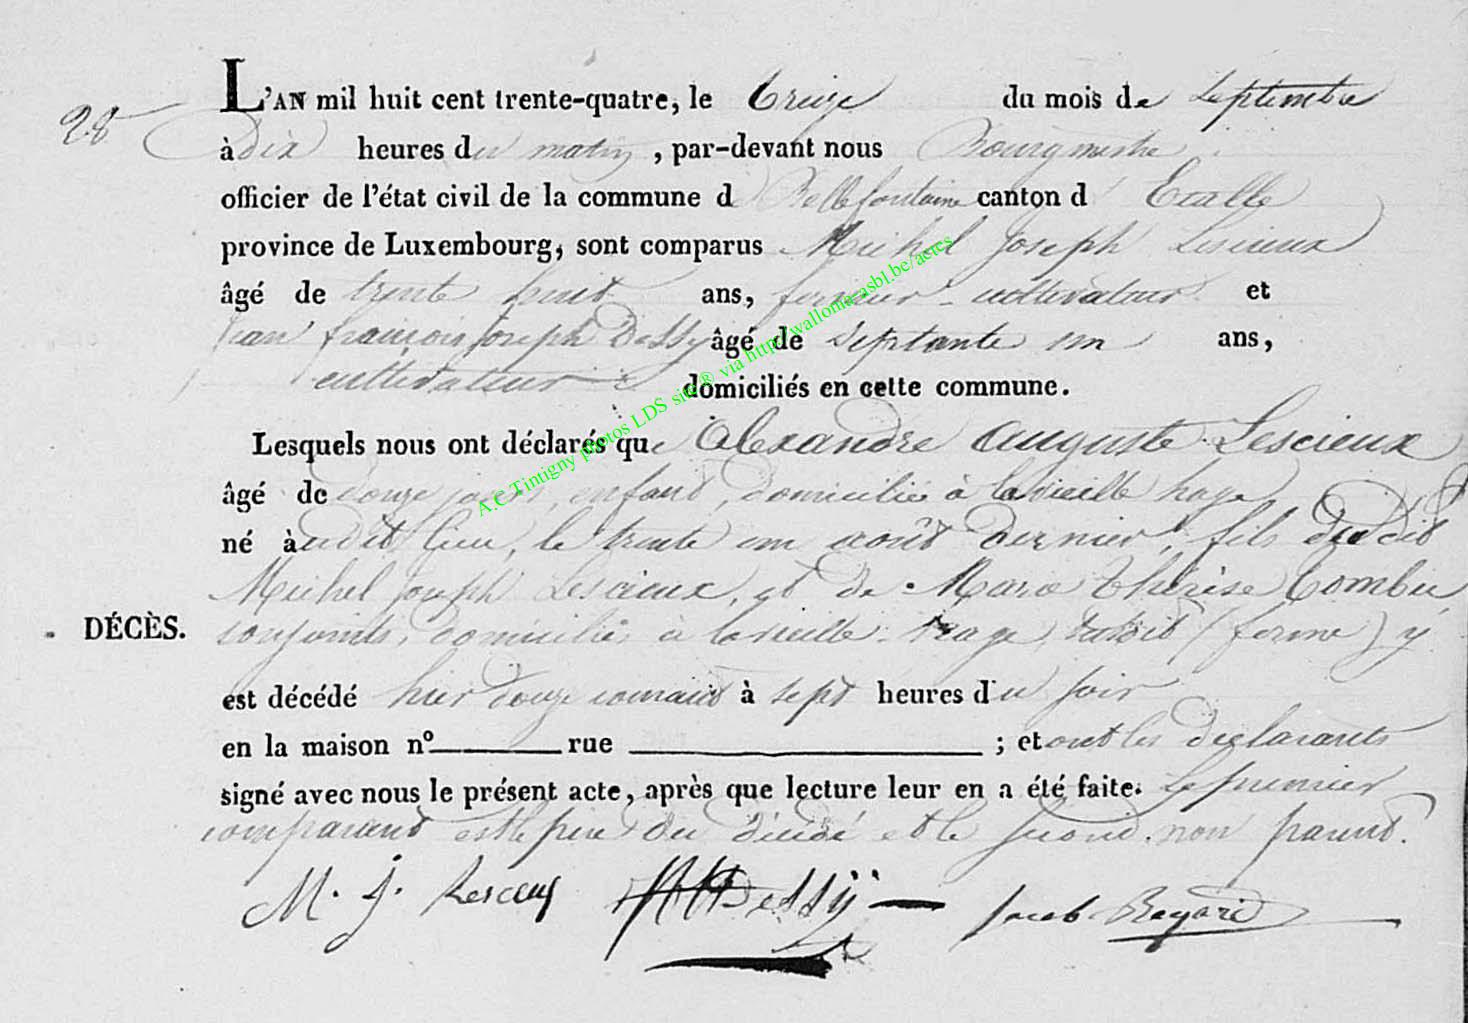 28
L'AN mil huit cent trente-quatre, le treize du mois de Septembre
à dix heures du matin, par-devant nous Bourgmestre
officier de l'état civil de la commune de Bellefontaine canton d'Etalle
province de Luxembourg, sont comparus Michel Joseph Lescieux
âgé de trente huit ans, fermier-cultivateur et
jean françois joseph Dessÿ âgé de septante un ans,
cultivateur domiciliés en cette commune.
Lesquels nous ont déclarés que Alexandre Auguste Lescieux
âgé de douze jours, enfant, domicilié à lavieille hage
né audit lieu, le trente un août dernier, fils dudit
Michel Joseph Lescieux, et de Marie thérèse Combie
conjoints, domiciliés à lavieille hage, (ferme) y
DÉCÈS.
est décédé hier douze courant à sept heures du soir
en la maison n° rue ; et ont les déclarants
signé avec nous le présent acte, après que lecture leur en a été faite. Le premier
comparant est le père du décédé et le second non parent.
M. J. Lescieux Dessÿ Jacob
A.C Tintigny photos LDS site® via http://wallonia-asbl.be/actes